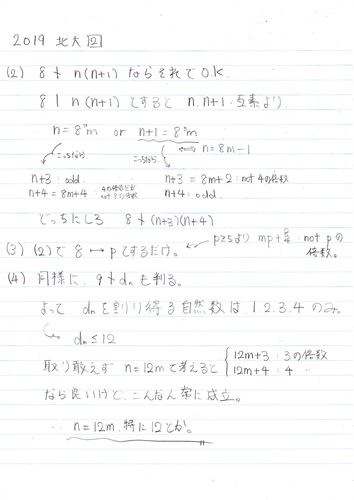 2019 北大 2
(2) 8 ∤ n(n+1) ならそれで O.K.
8 | n(n+1) とすると n, n+1 : 互素より
n = 8m or n+1 = 8m
こっちなら こっちなら ⇔ n = 8m-1
n+3 : odd. n+3 = 8m+2 : not 4の倍数
n+4 = 8m+4 : 4の倍数だが not 8の倍数 n+4 : odd.
どっちにしろ 8 ∤ (n+3)(n+4)
(3) (2)で 8 ↔ p とするだけ。 p≧5より mp+ : not pの倍数。
(4) 同様に、9 ∤ dn も判る。
よって dn を割り得る自然数は、1 2. 3. 4 のみ。
dn ≤ 12
取り敢えず n = 12m で考えると { 12m+3 : 3の倍数
12m+4 : 4 〃
なら良いけど、こんなん常に成立。
∴ n = 12m, 特に 12とか。